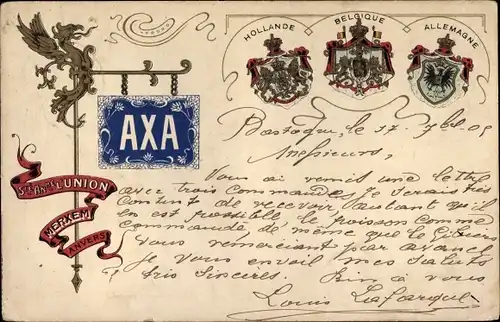 HOLLANDE
BELGIQUE
ALLEMAGNE
AXA
Sté Anme L'UNION
MERXEM
ANVERS
Bastogne, le 17. 7bre 05
Messieurs,
Vous ai remit une lettre
avec trois commande. Je serais très
content de recevoir, autant qu'il
en est possible le poisson comme
commande, de même que le
Vous remerciant par avance
Je vous envoil mes saluts
très sincères. Bien à vous
Louis Lafargue